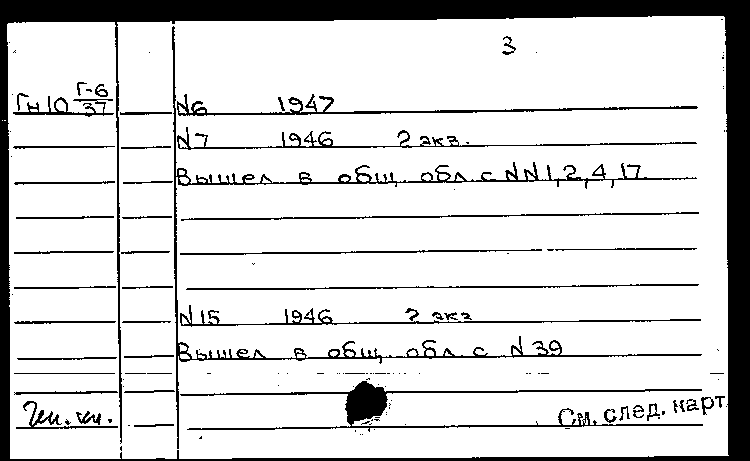 3
Гн10 Г-6/37 N6 1947
N7 1946 2 экз.
Вышел в общ. обл. с NN 1, 2, 4, 17
N15 1946 2 экз
Вышел в общ. обл. с N 39
См. след. карт